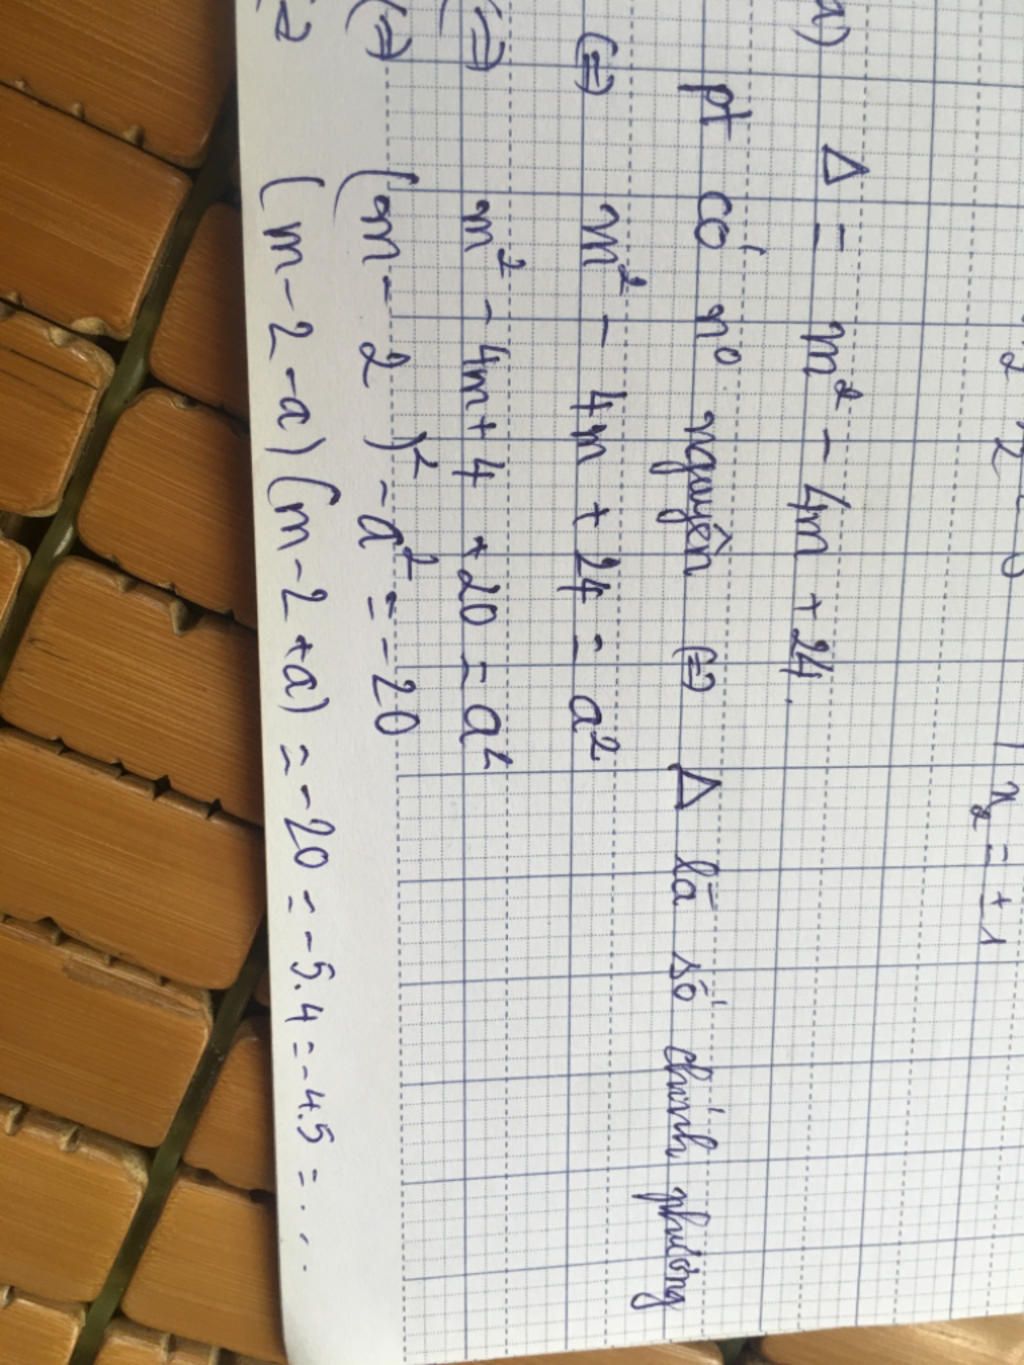 x₂ = +1
Δ = m² - 4m + 24.
pt có nº nguyên (=) Δ là số chính phương
(=) m² - 4m + 24 = a²
(=) m² - 4m + 4 + 20 = a²
(=) (m - 2)² - a² = -20
(m - 2 - a)(m - 2 + a) = -20 = -5.4 = -4.5 = ...